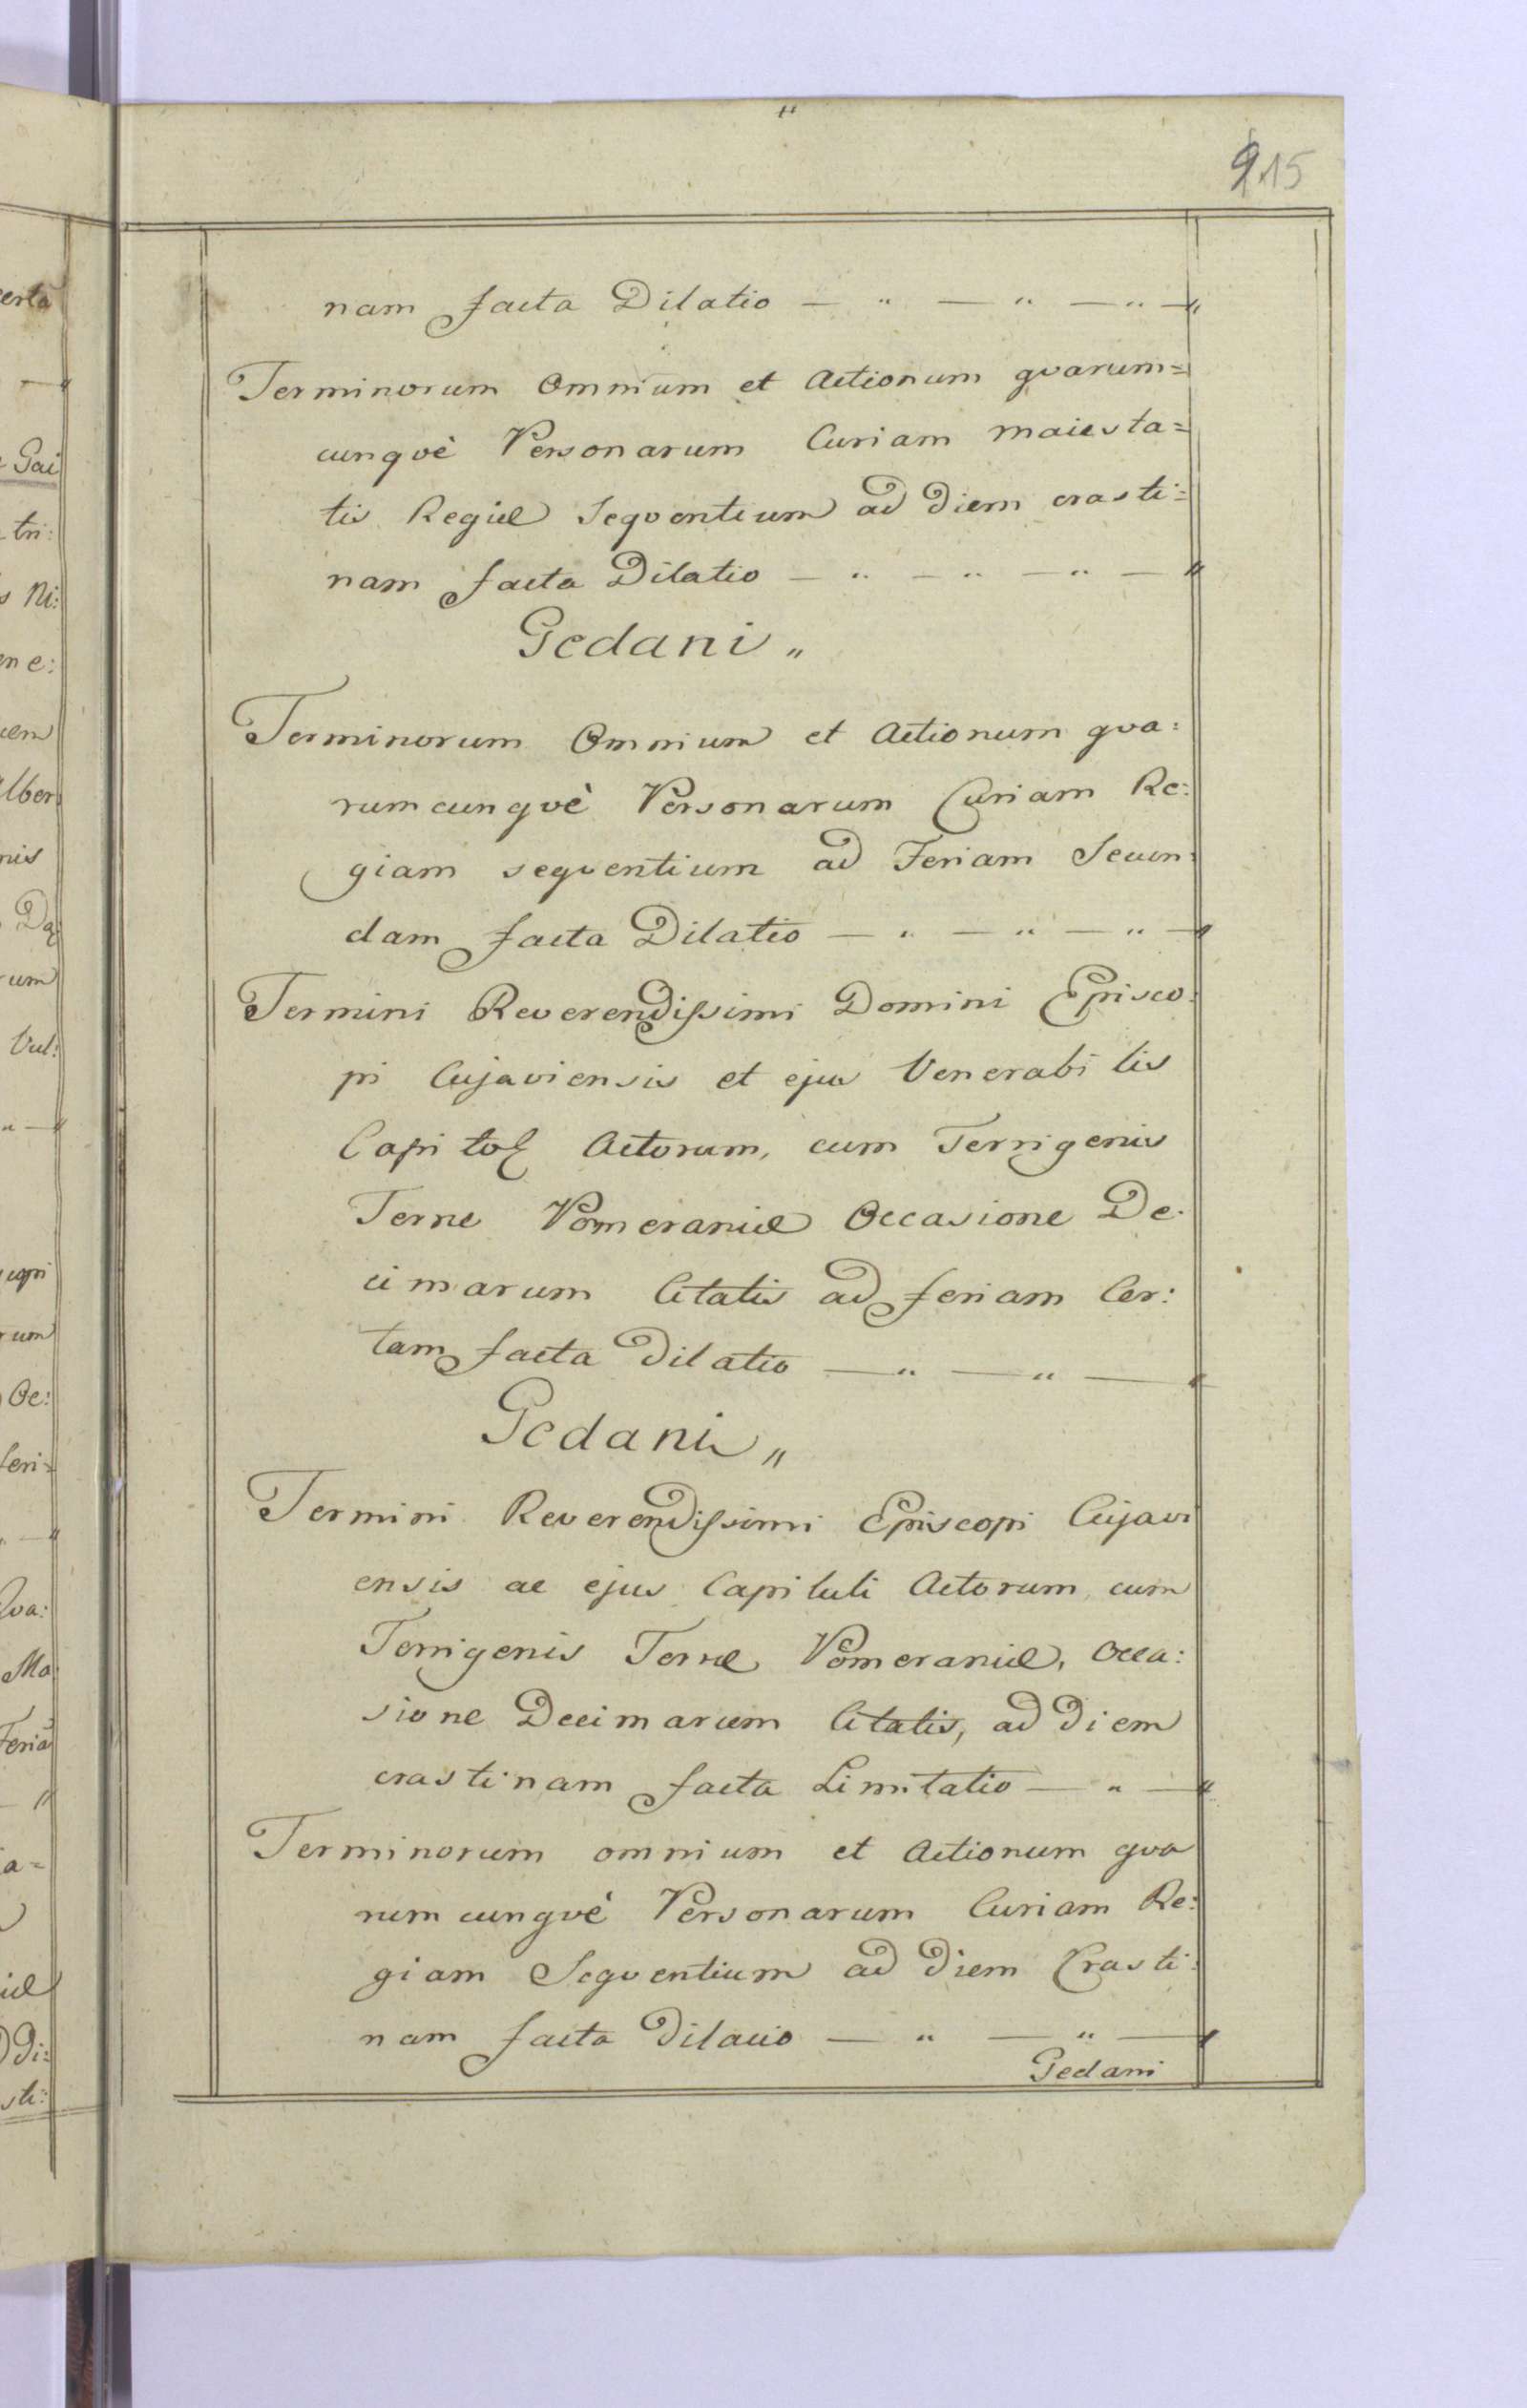 915
nam facta Dilatio — " — " — " —
Terminorum Omnium et Actionum qvarum=
cunqvè Personarum Curiam Maiesta=
tis Regiæ Seqventium ad Diem crasti=
nam facta Dilatio — " — " — " —
Gedani "
Terminorum Omnium et Actionum qva:
rumcunqvè Personarum Curiam Re:
giam seqventium ad Feriam Secun:
dam facta Dilatio — " — " — " —
Termini Reverendissimi Domini Episco:
pi Cujaviensis et ejus Venerabilis
Actorum, cum Terrigenis
Terræ Pomeraniæ Occasione De:
cimarum Citatis ad feriam Cer:
tam facta Dilatio — " — " —
Gedani "
Termini Reverendissimi Episcopi Cujavi
ensis ac ejus Capituli Actorum cum
Terrigenis Terræ Pomeraniæ, Occa:
sione Decimarum Citatis, ad Diem
crastinam facta Limitatio — " —
Terminorum omnium et Actionum qva
rumcunqvè Personarum Curiam Re:
giam Seqventium ad Diem Crasti:
nam facta Dilacio — " — " —
Gedani
erta
Gai
tri:
Ni:
ene:
uem
Alber
nis
rum
Vul:
rum
Oc:
feri=
Qva:
Ma
Feriã
a=
Di:
sti: